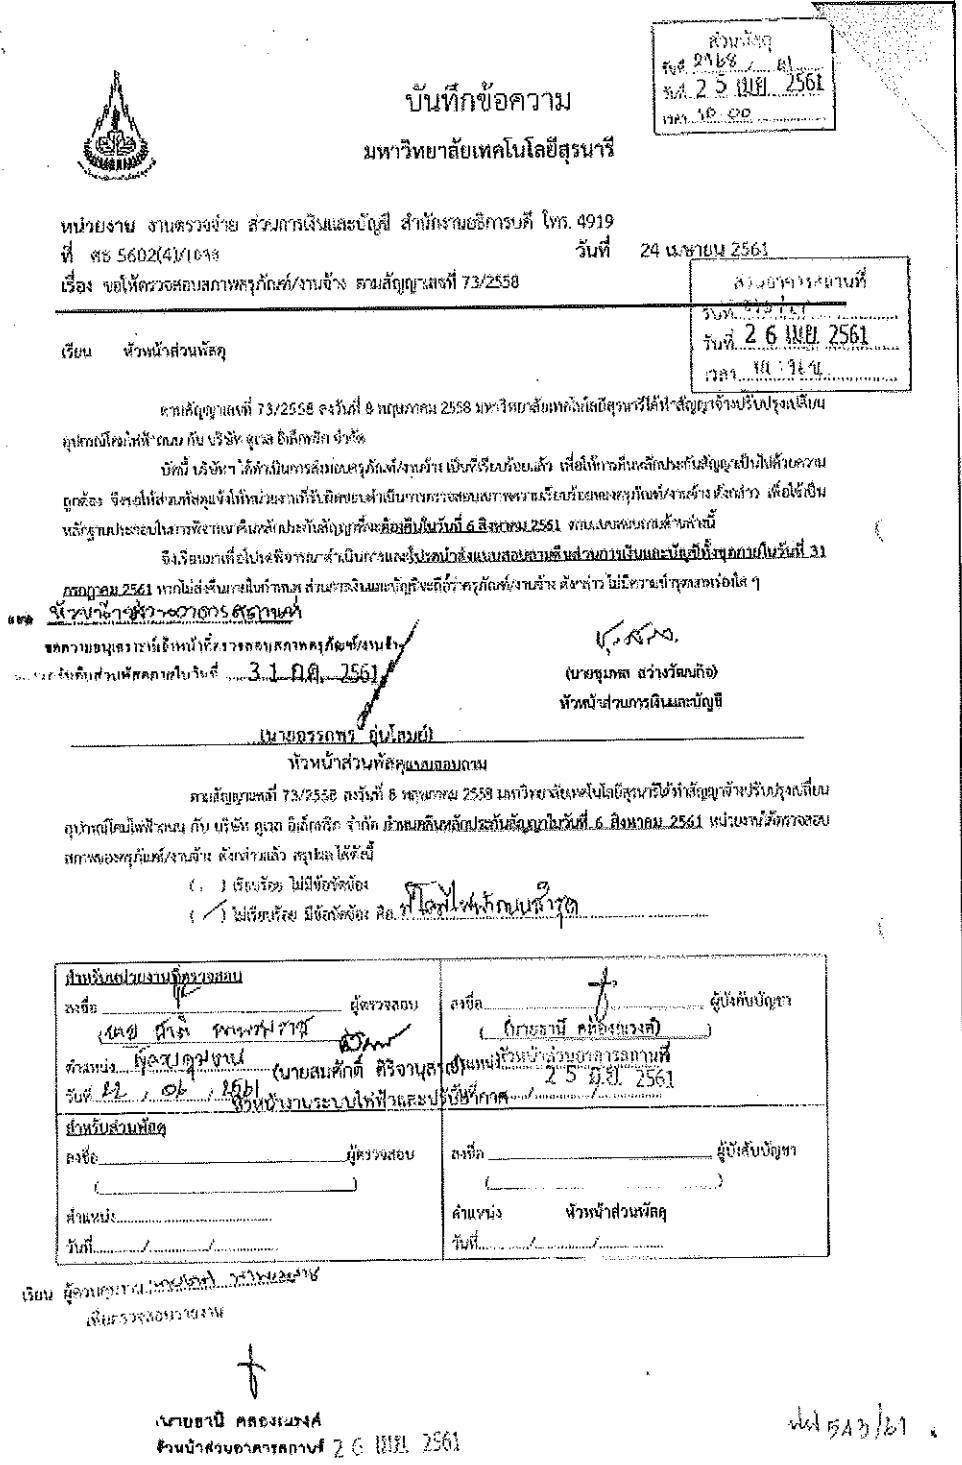 ส่วนพัสดุ
รับที่ 2168 / 61
วันที่ 2 5 เมย 2561
เวลา 10.00
บันทึกข้อความ
มหาวิทยาลัยเทคโนโลยีสุรนารี
หน่วยงาน งานตรวจจ่าย ส่วนการเงินและบัญชี สำนักงานอธิการบดี โทร. 4919
ที่ ศธ 5602(4)/ วันที่ 24 เมษายน 2561
เรื่อง ขอให้ตรวจสอบสภาพครุภัณฑ์/งานจ้าง ตามสัญญาเลขที่ 73/2558
ส่วนอาคารสถานที่
รับที่
วันที่ 2 6 เมย 2561
เวลา
เรียน หัวหน้าส่วนพัสดุ
ตามสัญญาเลขที่ 73/2558 ลงวันที่ 8 พฤษภาคม 2558 มหาวิทยาลัยเทคโนโลยีสุรนารีได้ทำสัญญาจ้างปรับปรุงเปลี่ยน
อุปกรณ์โคมไฟฟ้าถนน กับ บริษัท คูเวล อิเล็กทริก จำกัด
บัดนี้ บริษัทฯ ได้ดำเนินการส่งมอบครุภัณฑ์/งานจ้าง เป็นที่เรียบร้อยแล้ว เพื่อให้การคืนหลักประกันสัญญาเป็นไปด้วยความ
ถูกต้อง จึงขอให้ส่วนพัสดุแจ้งให้หน่วยงานที่รับผิดชอบดำเนินการตรวจสอบสภาพความเรียบร้อยของครุภัณฑ์/งานจ้าง ดังกล่าว เพื่อใช้เป็น
หลักฐานประกอบในการพิจารณาคืนหลักประกันสัญญาที่จะต้องคืนในวันที่ 6 สิงหาคม 2561 ตามแบบสอบถามด้านล่างนี้
จึงเรียนมาเพื่อโปรดพิจารณาดำเนินการและโปรดนำส่งแบบสอบถามคืนส่วนการเงินและบัญชีทั้งชุดภายในวันที่ 31
กรกฎาคม 2561 หากไม่ส่งคืนภายในกำหนด ส่วนการเงินและบัญชีจะถือว่าครุภัณฑ์/งานจ้าง ดังกล่าว ไม่มีความชำรุดบกพร่องใด ๆ
เรียน หัวหน้าส่วนอาคารสถานที่
ขอความอนุเคราะห์เจ้าหน้าที่ตรวจสอบสภาพครุภัณฑ์/งานจ้าง
คืนส่วนพัสดุภายในวันที่ 3 1 ก.ค. 2561
(นายชุมพล สว่างวัฒนกิจ)
หัวหน้าส่วนการเงินและบัญชี
(นายอรรถพร อุ่นโสมย์)
หัวหน้าส่วนพัสดุ
แบบสอบถาม
ตามสัญญาเลขที่ 73/2558 ลงวันที่ 8 พฤษภาคม 2558 มหาวิทยาลัยเทคโนโลยีสุรนารีได้ทำสัญญาจ้างปรับปรุงเปลี่ยน
อุปกรณ์โคมไฟฟ้าถนน กับ บริษัท คูเวล อิเล็กทริก จำกัด กำหนดคืนหลักประกันสัญญาในวันที่ 6 สิงหาคม 2561 หน่วยงานได้ตรวจสอบ
สภาพของครุภัณฑ์/งานจ้าง ดังกล่าวแล้ว สรุปผลได้ดังนี้
( ) เรียบร้อย ไม่มีข้อขัดข้อง
( / ) ไม่เรียบร้อย มีข้อขัดข้อง คือ มีโคมไฟฟ้าถนนชำรุด
สำหรับหน่วยงานที่ตรวจสอบ
ลงชื่อ ผู้ตรวจสอบ
ตำแหน่ง ผู้ควบคุมงาน
วันที่ 22 / 06 / 2561
(นายสมศักดิ์ ศิริจานุสรณ์)
หัวหน้างานระบบไฟฟ้าและปรับอากาศ
ลงชื่อ ผู้บังคับบัญชา
(นายธานี คล่องณรงค์)
ตำแหน่ง หัวหน้าส่วนอาคารสถานที่
2 5 มิ.ย. 2561
สำหรับส่วนพัสดุ
ลงชื่อ ผู้ตรวจสอบ
( )
ตำแหน่ง
วันที่ / /
ลงชื่อ ผู้บังคับบัญชา
( )
ตำแหน่ง หัวหน้าส่วนพัสดุ
วันที่ / /
เรียน ผู้ควบคุมงาน
เพื่อตรวจสอบรายงาน
(นายธานี คล่องณรงค์)
หัวหน้าส่วนอาคารสถานที่ 2 6 เมย 2561
543/61